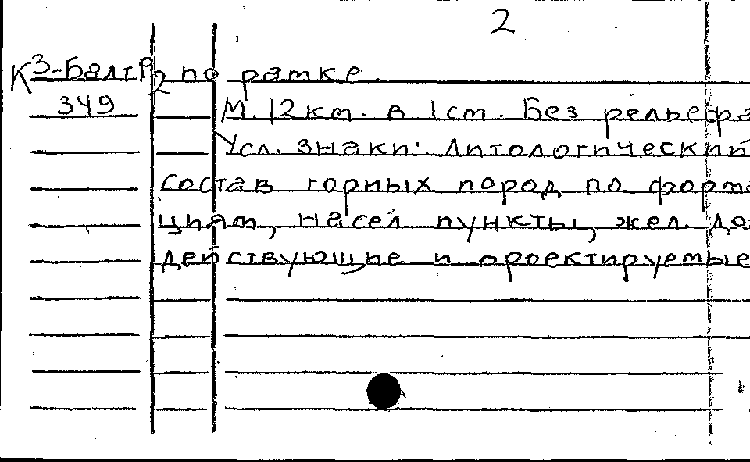 2
К3-БалтР2 по рамке.
349 М. 12 км. в 1 см. Без рельефа
Усл. знаки: Литологический
состав горных пород по форма
циям, насел пункты, жел. до
действующие и проектируемые